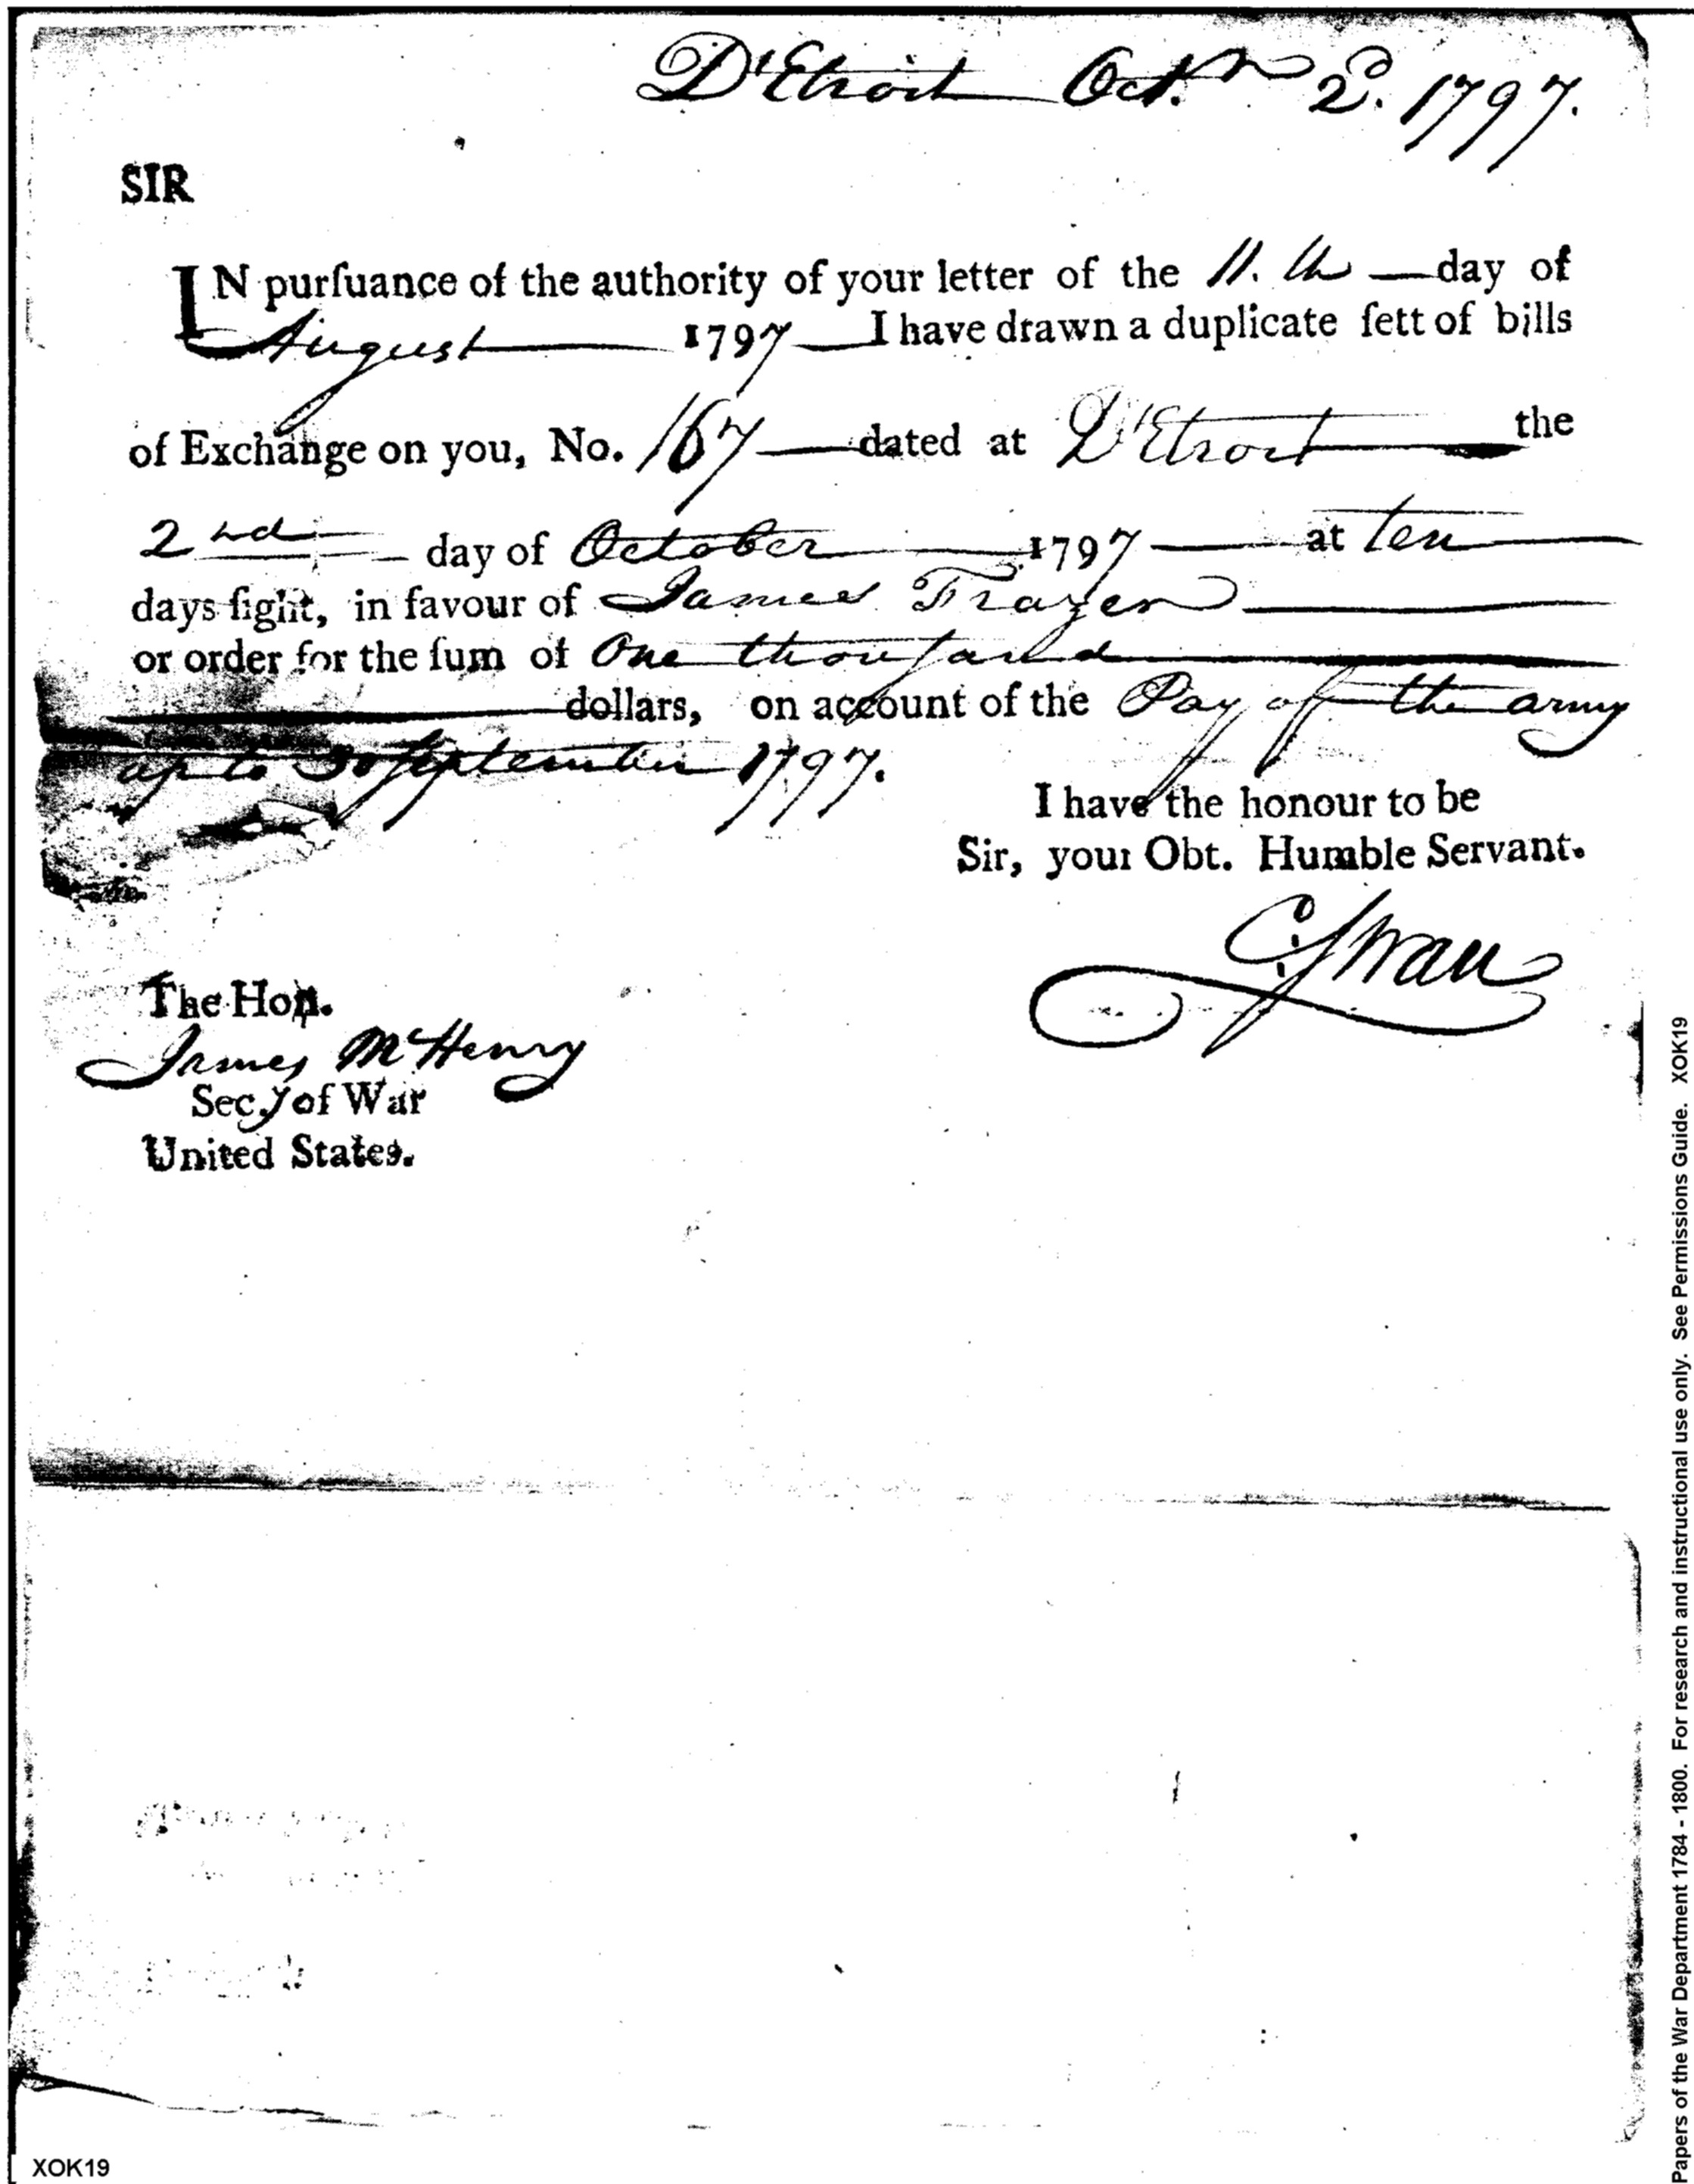 D'Etroit Octr 2d. 1797.
SIR
IN purſuance of the authority of your letter of the 11.th — day of
August — 1797 — I have drawn a duplicate ſett of bills
of Exchange on you, No. 167 — dated at D'Etroit — the
2nd — day of October — 1797 — at ten —
days ſight, in favour of James Frazer —
or order for the ſum of One thouſand —
— dollars, on account of the Pay of the army
up to 30 September 1797.
I have the honour to be
Sir, your Obt. Humble Servant.
C: Swan
The Hon.
James McHenry
Sec.y of War
United States.
Papers of the War Department 1784 - 1800. For research and instructional use only. See Permissions Guide. XOK19
XOK19